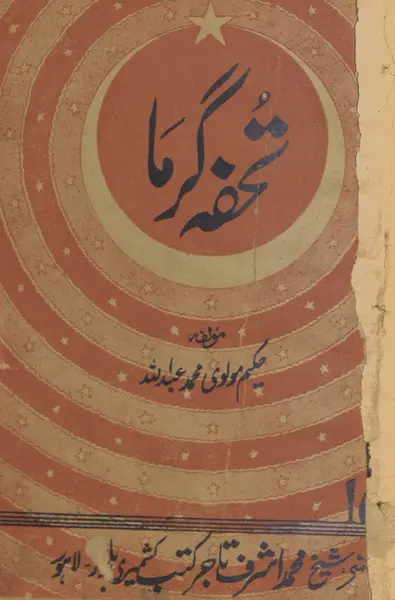 تُحفہ گرما
مؤلفہ
حکیم مولوی محمد عبداللہ
شیخ محمد اشرف تاجر کتب کشمیری بازار لاہور